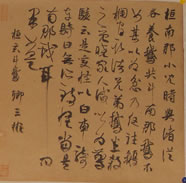 桓南郡小兒時與諸從
兄弟各養鵝共鬥南郡鵝每不
如甚以為忿乃夜往鵝
欄間取諸兄弟鵝悉殺
之既曉家人咸以驚
駭云是變怪以白車騎
曰無所致怪當是
南郡戲耳問
果
桓玄鬥鵝